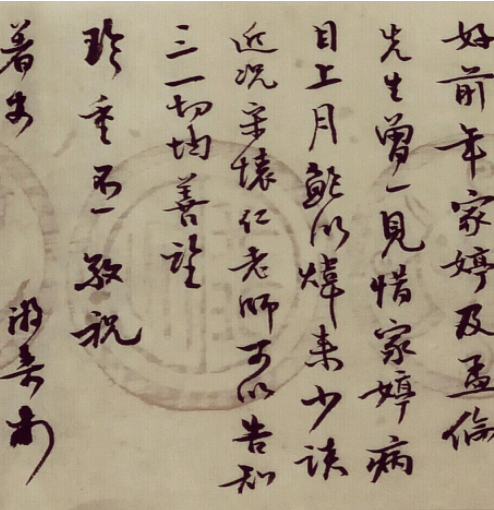 好前年家婷及孟倫
先生曾一見惜家婷病
目上月鮑以煒來少談
近況宋懷仁老師可以告知
三一切均善望
珍重不一敬祝
著安 游壽